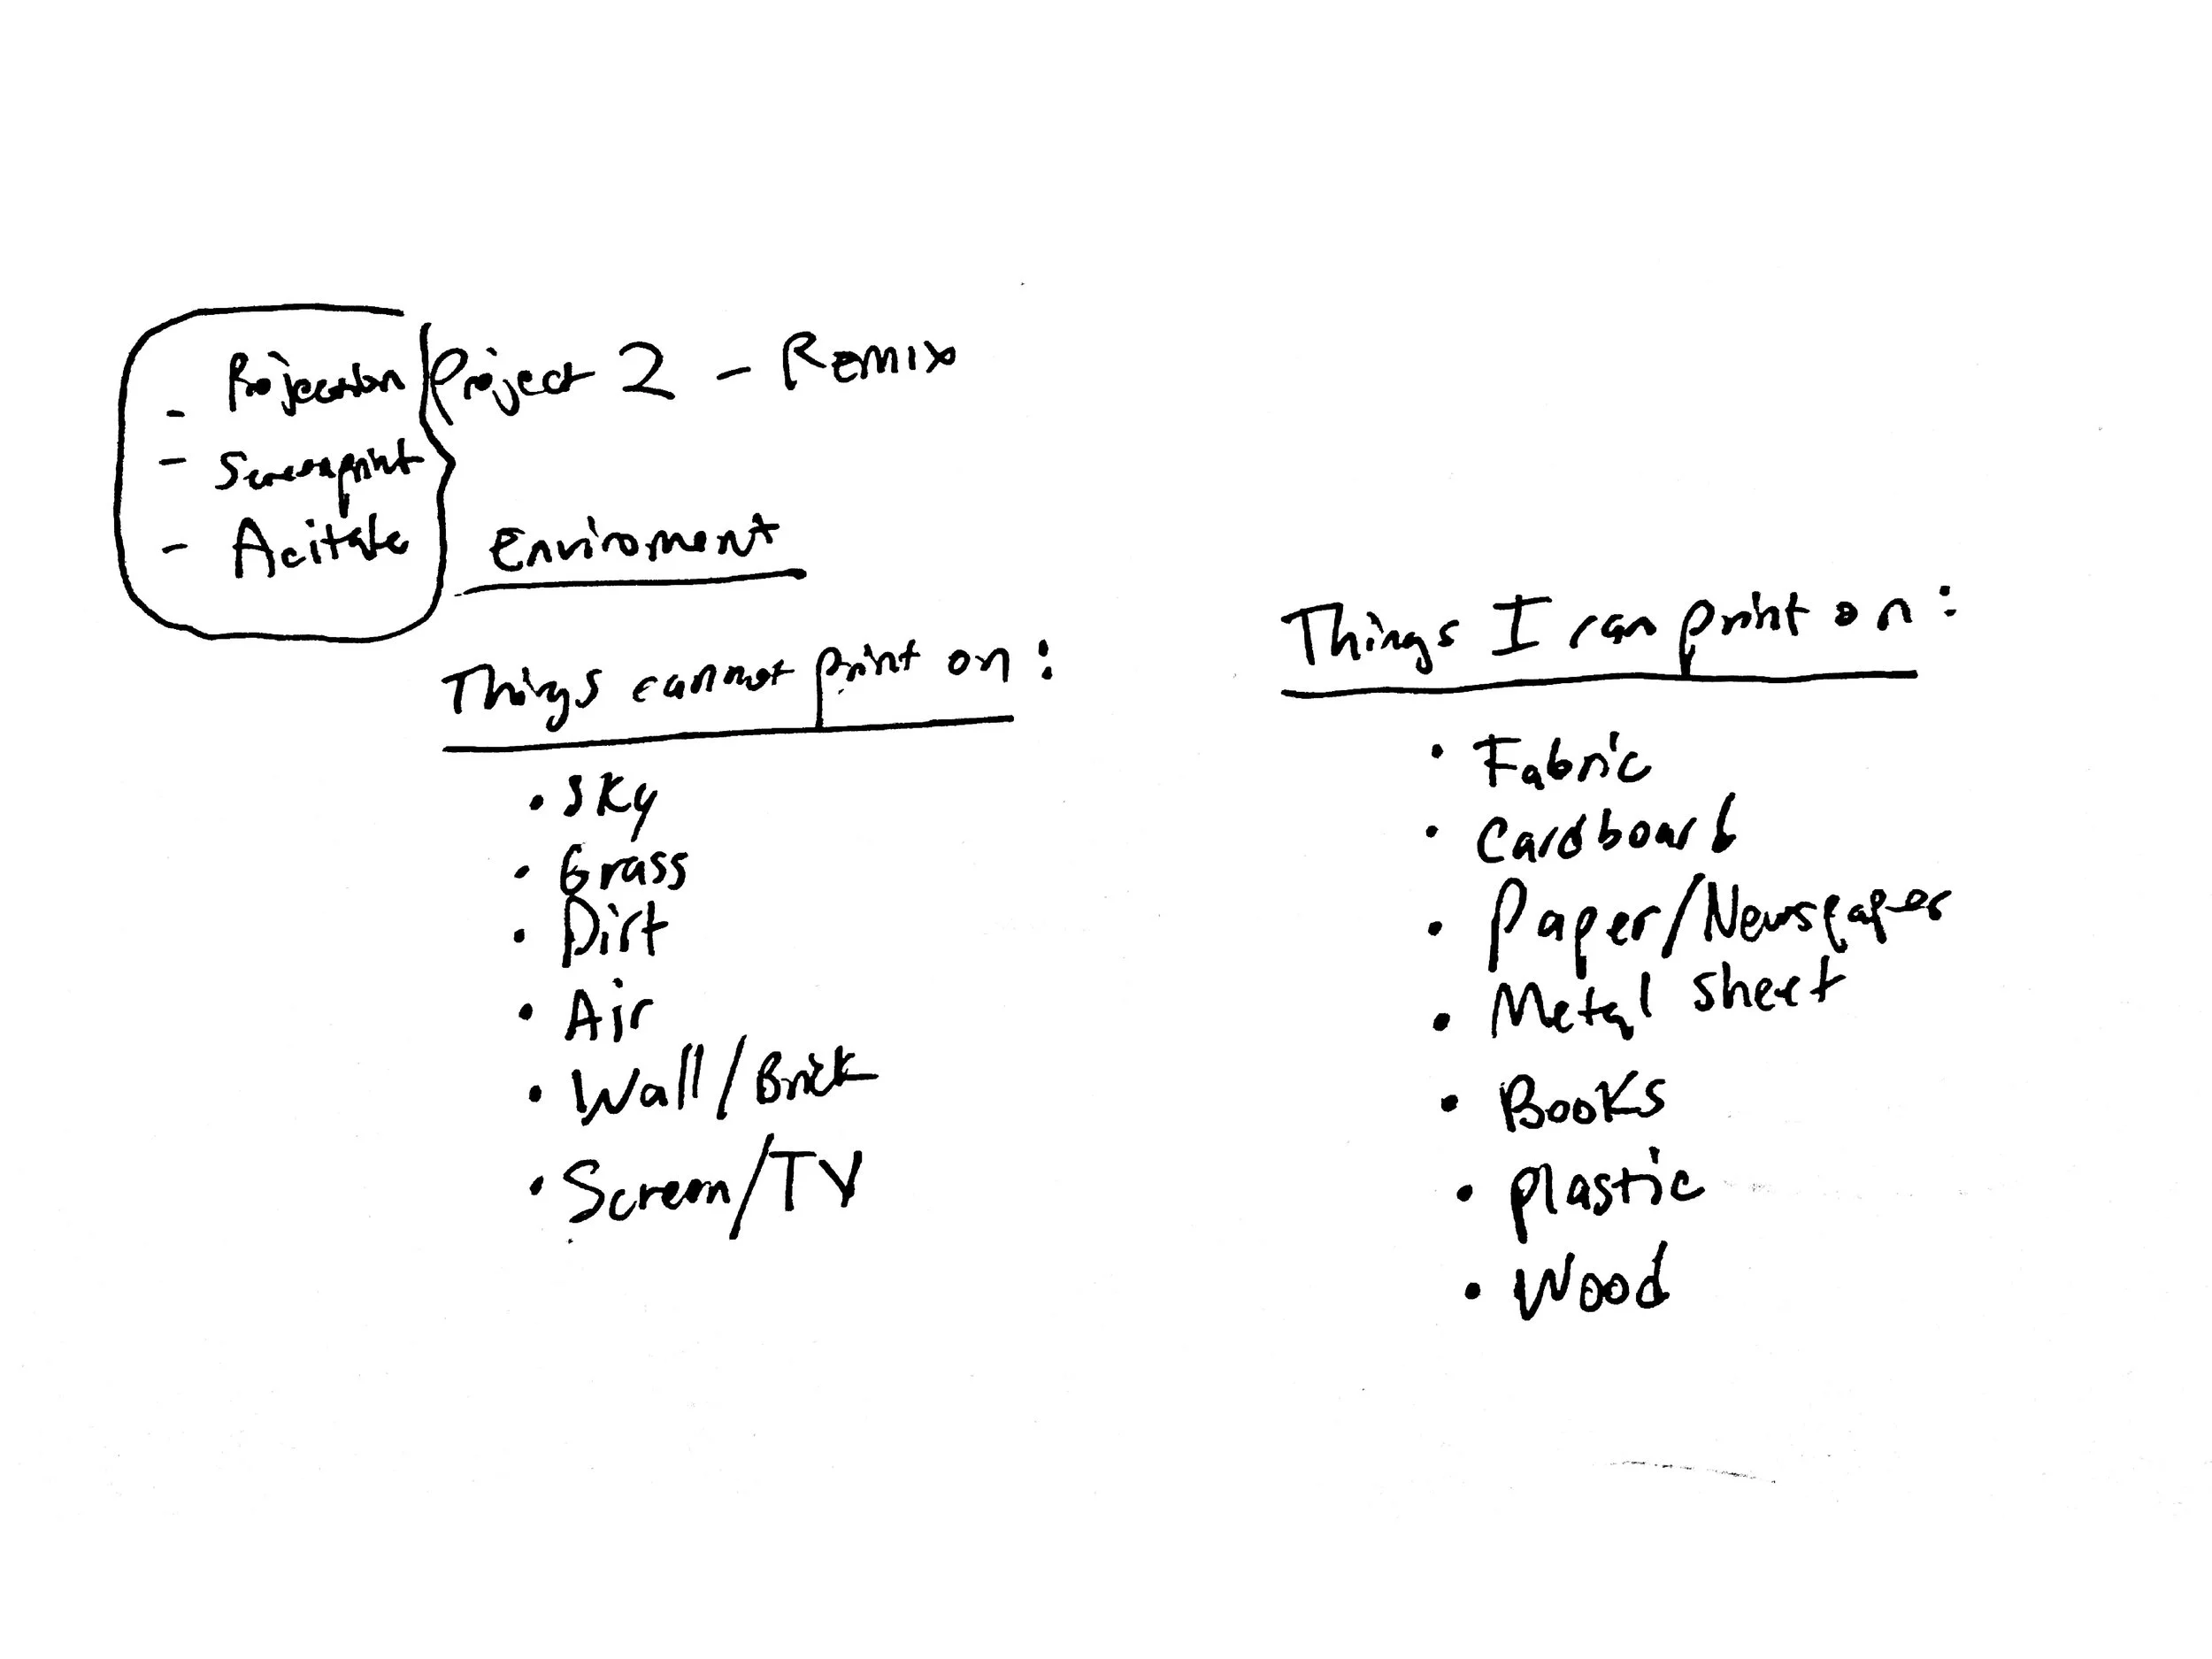 Project 2 - Remix
- Projection
- Screenprint
- Acitate
Enviroment
Things cannot print on:
• Sky
• Grass
• Dirt
• Air
• Wall/Brick
• Screen/TV
Things I can print on:
• Fabric
• Cardboard
• Paper/Newspaper
• Metal sheet
• Books
• plastic
• Wood